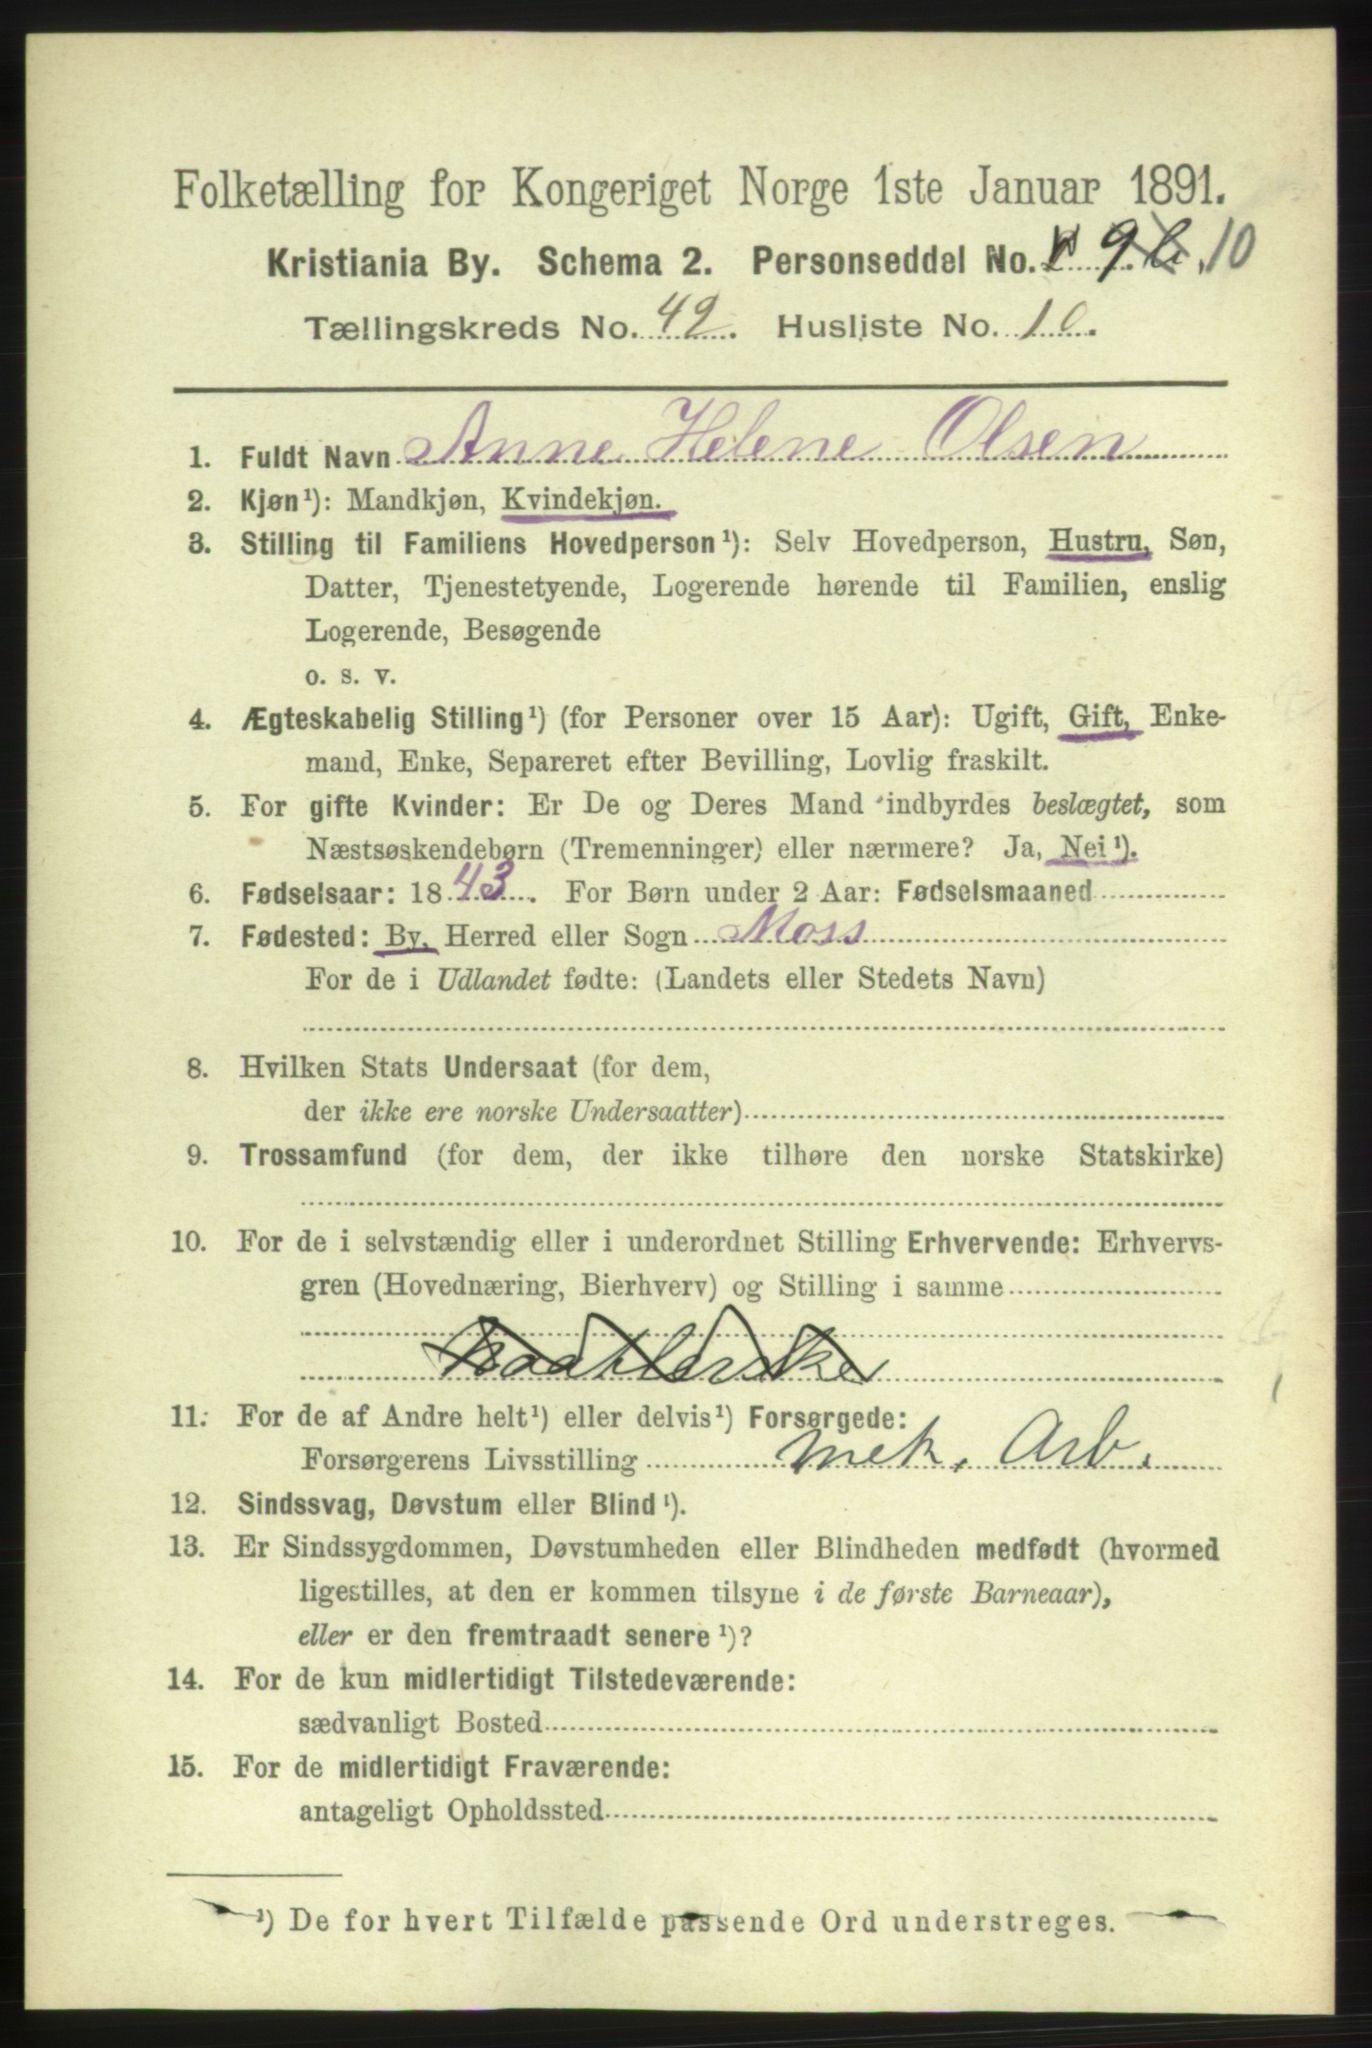 Folketælling for Kongeriget Norge 1ste Januar 1891.
Kristiania By. Schema 2. Personseddel No. 9. 10
Tællingskreds No. 42. Husliste No. 10.
1. Fuldt Navn Anne Helene Olsen
2. Kjøn¹): Mandkjøn, Kvindekjøn.
3. Stilling til Familiens Hovedperson¹): Selv Hovedperson, Hustru, Søn,
Datter, Tjenestetyende, Logerende hørende til Familien, enslig
Logerende, Besøgende
o. s. v.
4. Ægteskabelig Stilling¹) (for Personer over 15 Aar): Ugift, Gift, Enke-
mand, Enke, Separeret efter Bevilling, Lovlig fraskilt.
5. For gifte Kvinder: Er De og Deres Mand indbyrdes beslægtet, som
Næstsøskendebørn (Tremenninger) eller nærmere? Ja, Nei¹).
6. Fødselsaar: 1843. For Børn under 2 Aar: Fødselsmaaned
7. Fødested: By, Herred eller Sogn Moss
For de i Udlandet fødte: (Landets eller Stedets Navn)
8. Hvilken Stats Undersaat (for dem,
der ikke ere norske Undersaatter)
9. Trossamfund (for dem, der ikke tilhøre den norske Statskirke)
10. For de i selvstændig eller i underordnet Stilling Erhvervende: Erhvervs-
gren (Hovednæring, Bierhverv) og Stilling i samme
11. For de af Andre helt¹) eller delvis¹) Forsørgede:
Forsørgerens Livsstilling mek. Arb.
12. Sindssvag, Døvstum eller Blind¹).
13. Er Sindssygdommen, Døvstumheden eller Blindheden medfødt (hvormed
ligestilles, at den er kommen tilsyne i de første Barneaar),
eller er den fremtraadt senere¹)?
14. For de kun midlertidigt Tilstedeværende:
sædvanligt Bosted
15. For de midlertidigt Fraværende:
antageligt Opholdssted
¹) De for hvert Tilfælde passende Ord understreges.